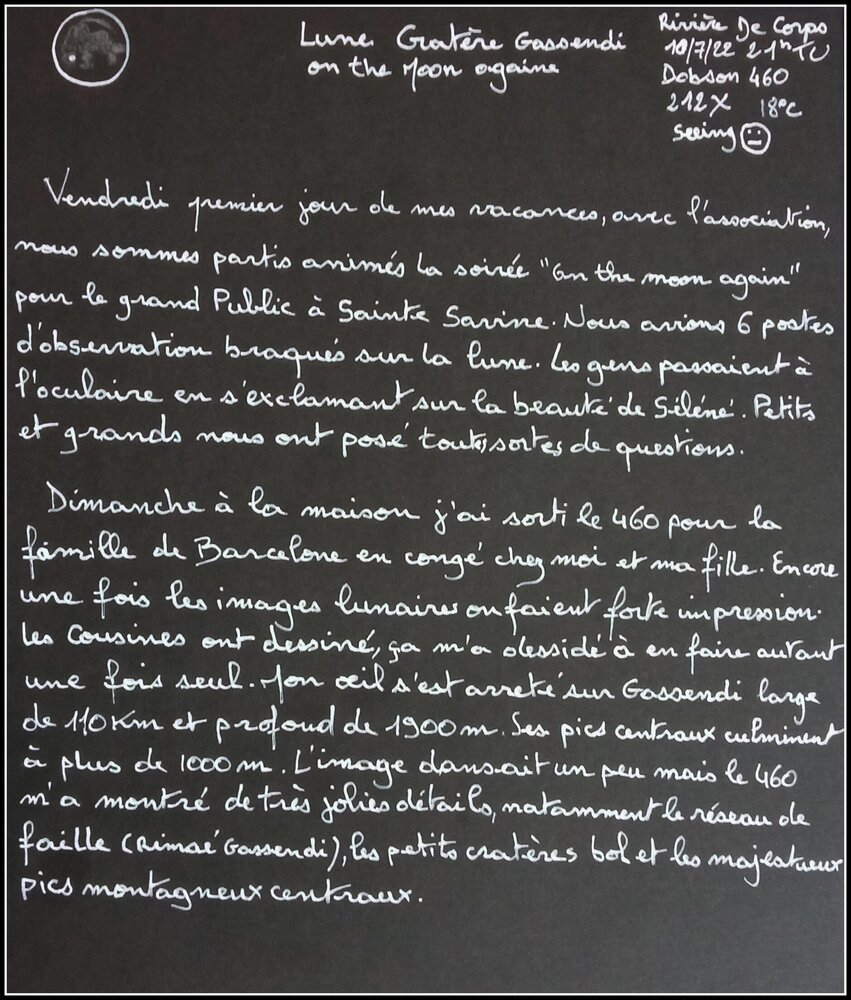 Lune Cratère Gassendi
on the Moon againe
Rivière De Corps
10/7/22 21h TU
Dobson 460
212X 18°C
seeing
Vendredi premier jour de mes vacances, avec l'association,
nous sommes partis animés la soirée "on the moon again"
pour le grand Public à Sainte Savine. Nous avions 6 postes
d'observation braqués sur la lune. Les gens passaient à
l'oculaire en s'exclamant sur la beauté de Séléné. Petits
et grands nous ont posé toutes sortes de questions.
Dimanche à la maison j'ai sorti le 460 pour la
famille de Barcelone en congé chez moi et ma fille. Encore
une fois les images lunaires on faient forte impression.
Les cousines ont dessiné, ça m'a dessidé à en faire autant
une fois seul. Mon œil s'est arreté sur Gassendi large
de 110 Km et profond de 1900 m. Ses pics centraux culminent
à plus de 1000 m. L'image dansait un peu mais le 460
m'a montré de très jolies détails, natamment le réseau de
faille (Rimaé Gassendi), les petits cratères bol et les majestueux
pics montagneux centraux.